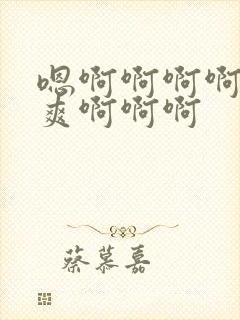 嗯啊啊啊啊
爽啊啊啊
蔡慕嘉